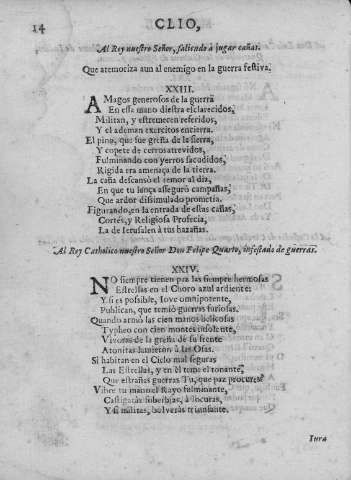 14
CLIO,
Al Rey nuestro Señor, saliendo à jugar cañas.
Que atemoriza aun al enemigo en la guerra festiva.
XXIII.
AMagos generosos de la guerra
En essa mano diestra esclarecidos,
Militan, y estremecen referidos,
Y el ademan exercitos encierra.
El pino, que fue greña de la sierra,
Y copete de cerros atrevidos,
Fulminando con yerros sacudidos,
Rigida era amenaça de la tierra.
La caña descansò el temor al dia,
En que tu lança assegurò campañas,
Que ardor dissimulado prometia.
Figurando, en la entrada de estas cañas,
Cortès, y Religiosa Profecia,
La de Jerusalen à tus hazañas.
Al Rey Catholico nuestro Señor Don Felipe Quarto, infestado de guerras.
XXIV.
NO siempre tienen paz las siempre hermosas
Estrellas en el Choro azul ardiente:
Y si es posible, Iove omnipotente,
Publican, que temiò guerras furiosas.
Quando armò las cien manos belicosas
Typheo con cien montes insolente,
Vivoras de la greña de su frente
Atonitas lamieron à las Osas.
Si habitan en el Cielo mal seguras
Las Estrellas, y en èl teme el tonante,
Que estrañas guerras Tu, que paz procures?
Vibre tu mano el Rayo fulminante,
Castigaràs soberbias, à locuras,
Y si militas, bolveràs triunfante.
Jura